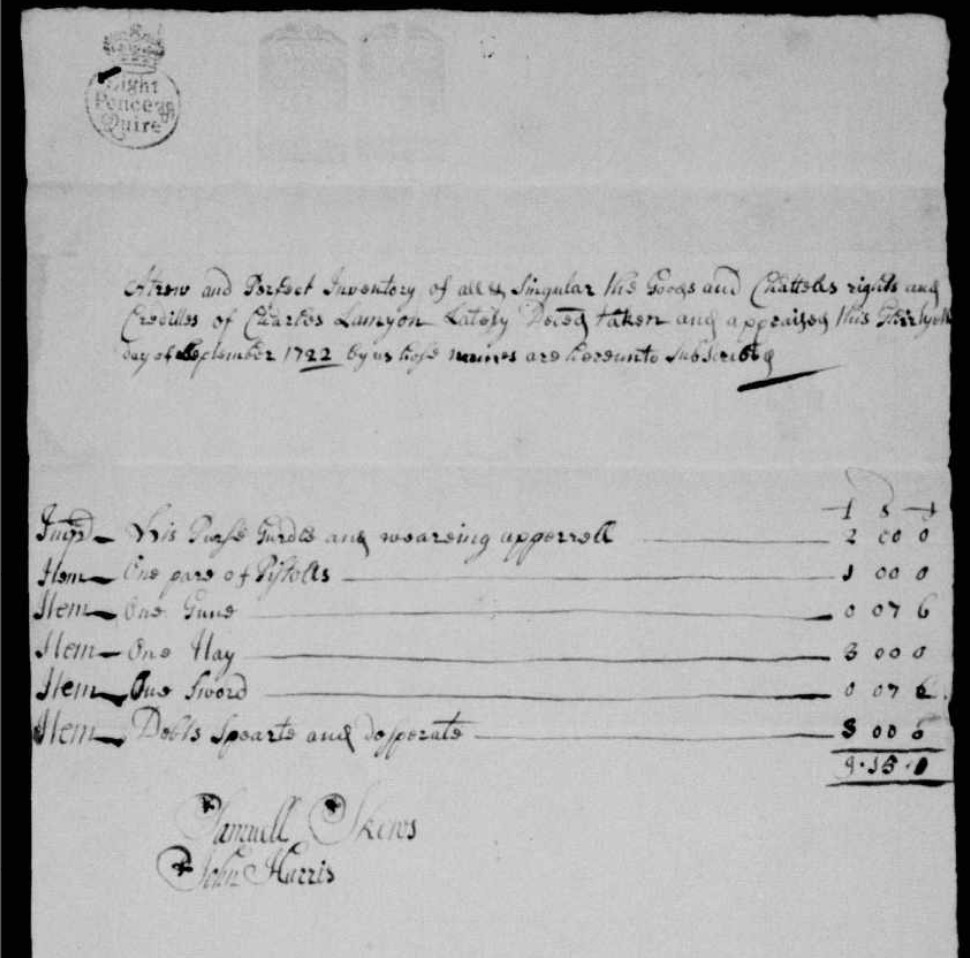 Eight
Pence p
Quire
A trew and Perfect Inventory of all & Singular the Goods and Chattells rights and
Creditts of Charles Lanyon Lately Deced taken and appraised this
day of September 1722 by us those names are hereunto Subscribed
l s d
Imp̄d His Purse Gurdle and weareing apperrell 2 00 0
Item One pare of Pistolls 1 00 0
Item One Gune 0 07 6
Item One Hay 3 00 0
Item One Sword 0 07 6
Item Debts Spearte and desperate 3 00 0
9 15 0
Samuell Skews
John Harris